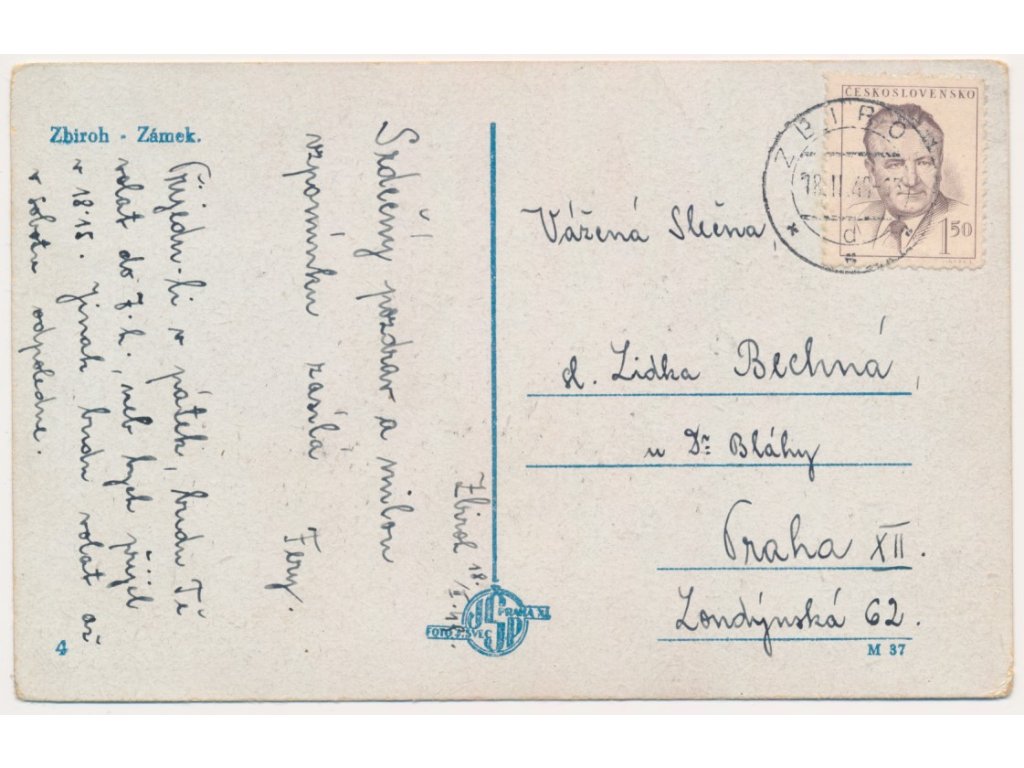 Zbiroh - Zámek.
Zbiroh 18./II.49.
Srdečný pozdrav a milou
vzpomínku zasílá Fery.
Přijedu-li v pátek, budu Tě
volat do 7.h., neb bych přijel
v 18.15. Jinak budu volat až
v sobotu odpoledne.
4
FOTO F. ŠVEC PRAHA XI.
ČESKOSLOVENSKO
1.50
ZBIROH
18.II.49
d
Vážená Slečna,
sl. Lidka Bechná
u Dr Bláhy
Praha XII.
Londýnská 62.
M 37